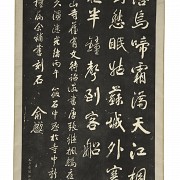 落烏啼霜滿天江楓
對愁眠姑蘇城外寒
夜半鐘聲到客船
山寺舊有文待詔所書唐張繼楓橋夜
久漫漶光緒丙午筱石中丞於寺中新
楹屬余補書刻石 俞樾